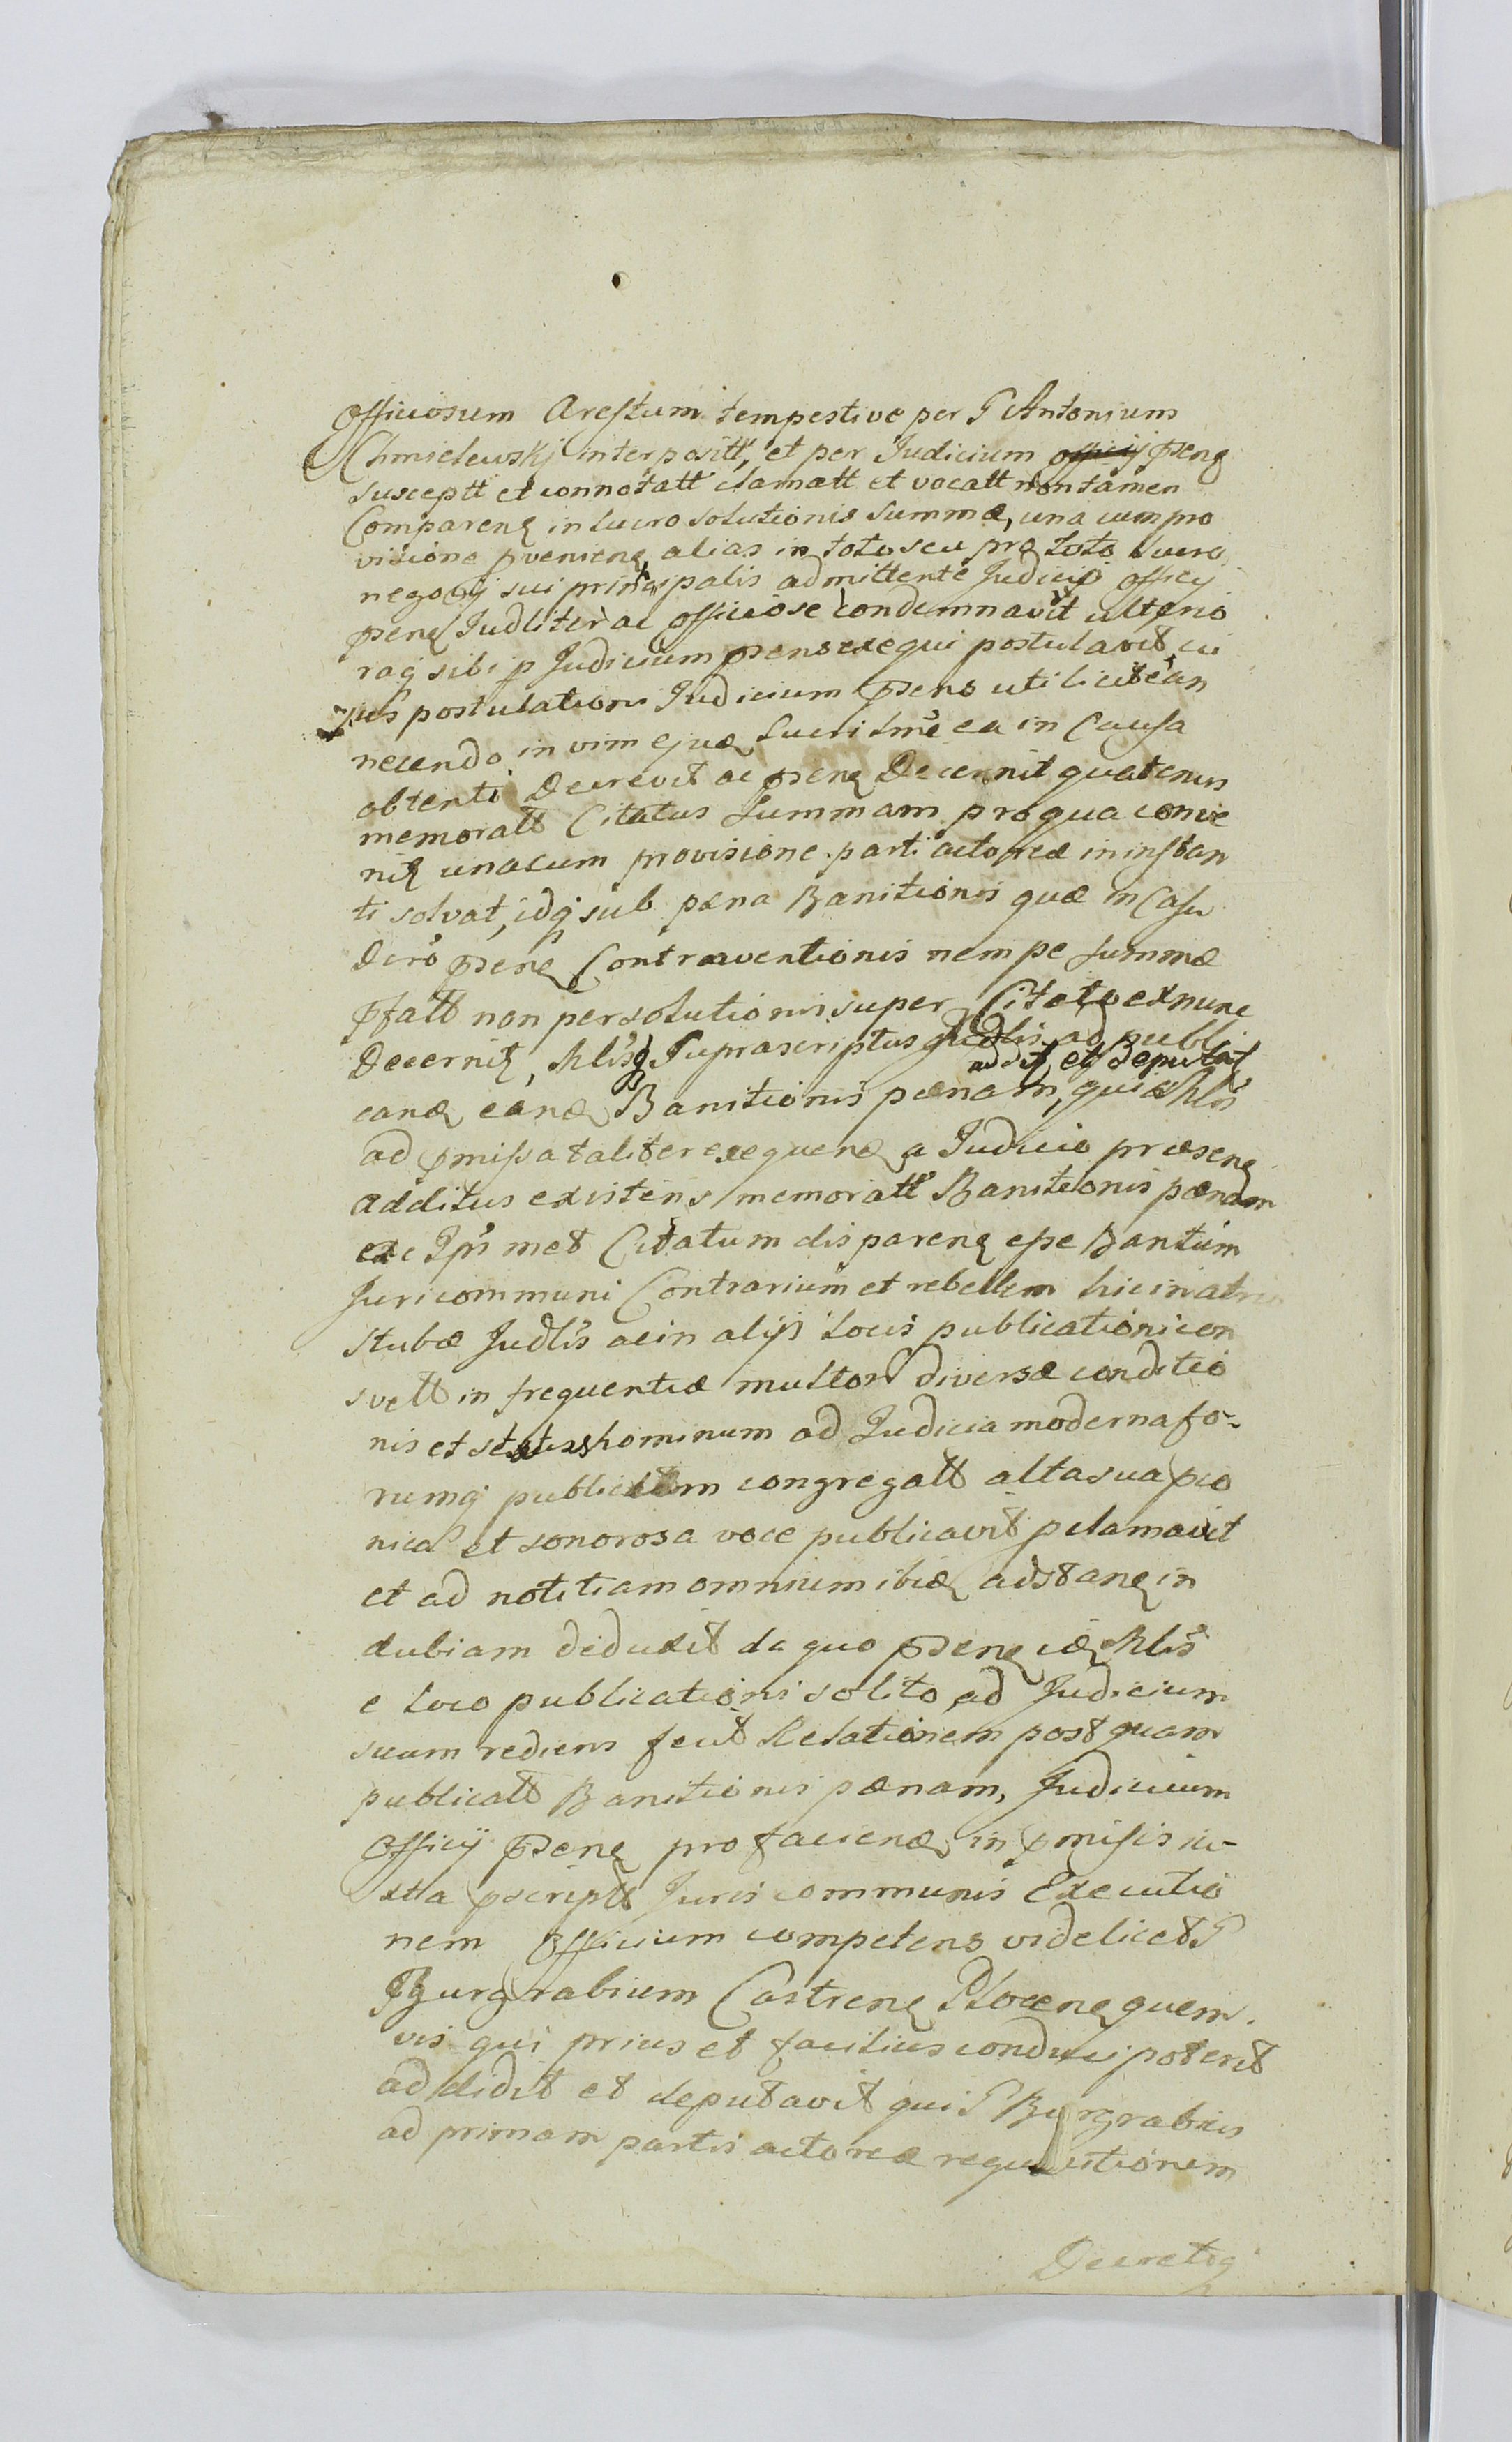 Officiosum Arestum tempestive per G Antonium
Chmielewskj interpositt, et per Judicium officij psenę
susceptt et connotatt clamatt et vocatt non tamen
Comparenę in lucro solutionis Summæ, una cum pro
visione pvenienę, alias in toto seu pro toto lucro
negotij sui principalis admittente Judicio officij
psenę Judliter ac officiose condemnavit ulterio
raq sibi p Judicium psens exequi postulavit, cu
jus postulationi Judicium psens uti licitè an
necendo in vim ejus Lucri tmè ea in Causa
obtenti Decrevit ac psenę Decernit quatenus
memoratt Citatus Summam pro qua conve
nitę una cum provisione parti actoreæ in instan
ti solvat, idq sub pæna Banitionis quæ in Casu
Dcrò psenę Contraventionis nempe Summæ
pfatt non persolutionis super Citato ex nunc
Decernitę, Mlisq Suprascriptus Judlis ad publi
addit et deputat
canę eandę Banitionis pænam, qui Mlis
ad pmissa taliter exequendę a Judicio præsenę
additus existens memoratt Banitionis pænam
ac Ipmmet Citatum disparenę esse Banitum
Juri communi Contrarium et rebellem hic in atrio
Stubæ Judlis ac in alijs locis publicationi con
svett in frequentia multorum diversæ conditio
nis et status hominum ad Judicia moderna fo-
rumq publicum congregatt alta sua præo
nica et sonorosa voce publicavit pclamavit
et ad notitiam omnium ibidę adstanę in
dubiam deduxit de quo psenę idę Mlis
e loco publicationi solito, ad Judicium
suum rediens fecit Relationem post quam
publicatt Banitionis pænam, Judicium
Officij psenę pro faciendę in pmissis iu-
xta pscriptt Juris communis Executio
nem Officium competens videlicet G
Burgrabium Castrenę Plocenę quem-
vis qui prius et facilius conduci poterit
addidit et deputavit qui G Burgrabius
ad primam partis actoreæ requisitionem
Decretoq